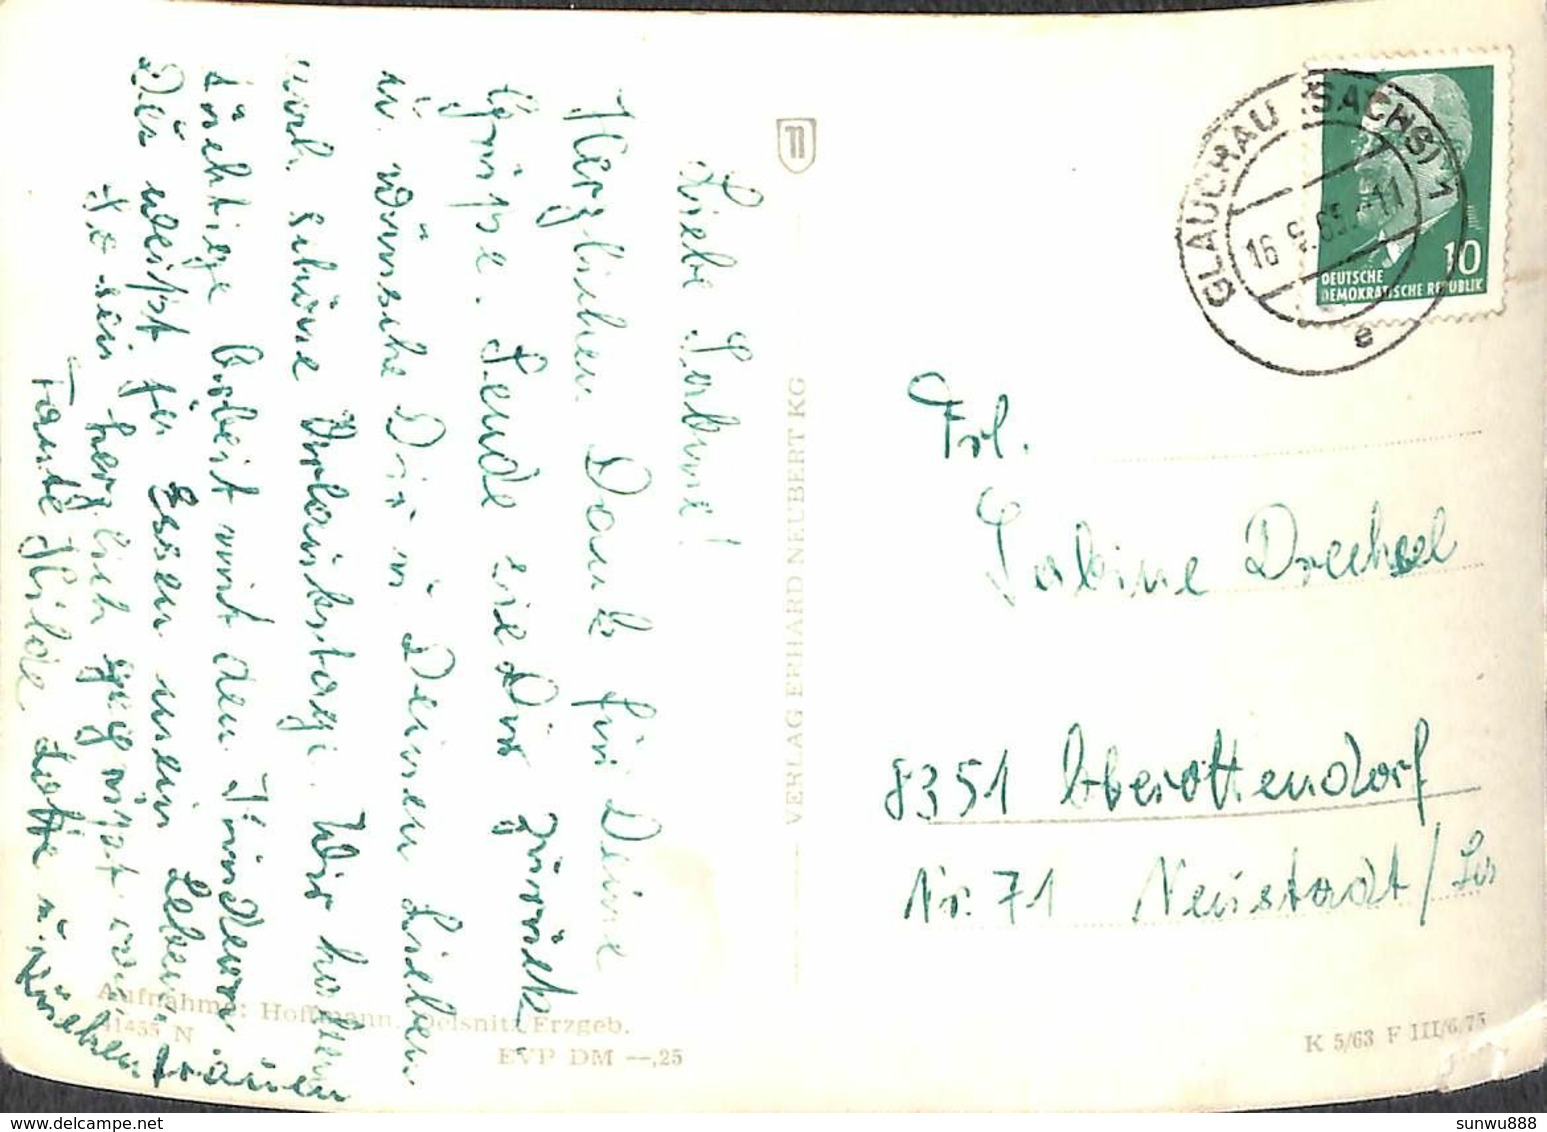 Liebe Sabine!
Herzlichen Dank für Deine
Grüße. Sende sie Dir zurück
u. wünsche Dir u. Deinen Lieben
noch schöne Urlaubstage. Wir haben
tüchtige Arbeit mit den Kindern
Du weißt ja Essen mein Leben
So sei herzlich gegrüßt von
Tante Hilde Lotte u.
VERLAG ERHARD NEUBERT KG
Aufnahme: Hoffmann, Oelsnitz/Erzgeb.
41455 N
EVP DM —,25
GLAUCHAU (SACHS) 1
16.9.65.-11
e
10
DEUTSCHE
DEMOKRATISCHE REPUBLIK
Frl.
Sabine Drechsel
8351 Oberottendorf
Nr. 71 Neustadt/Sa
K 5/63 F III/6/75
sunwu888